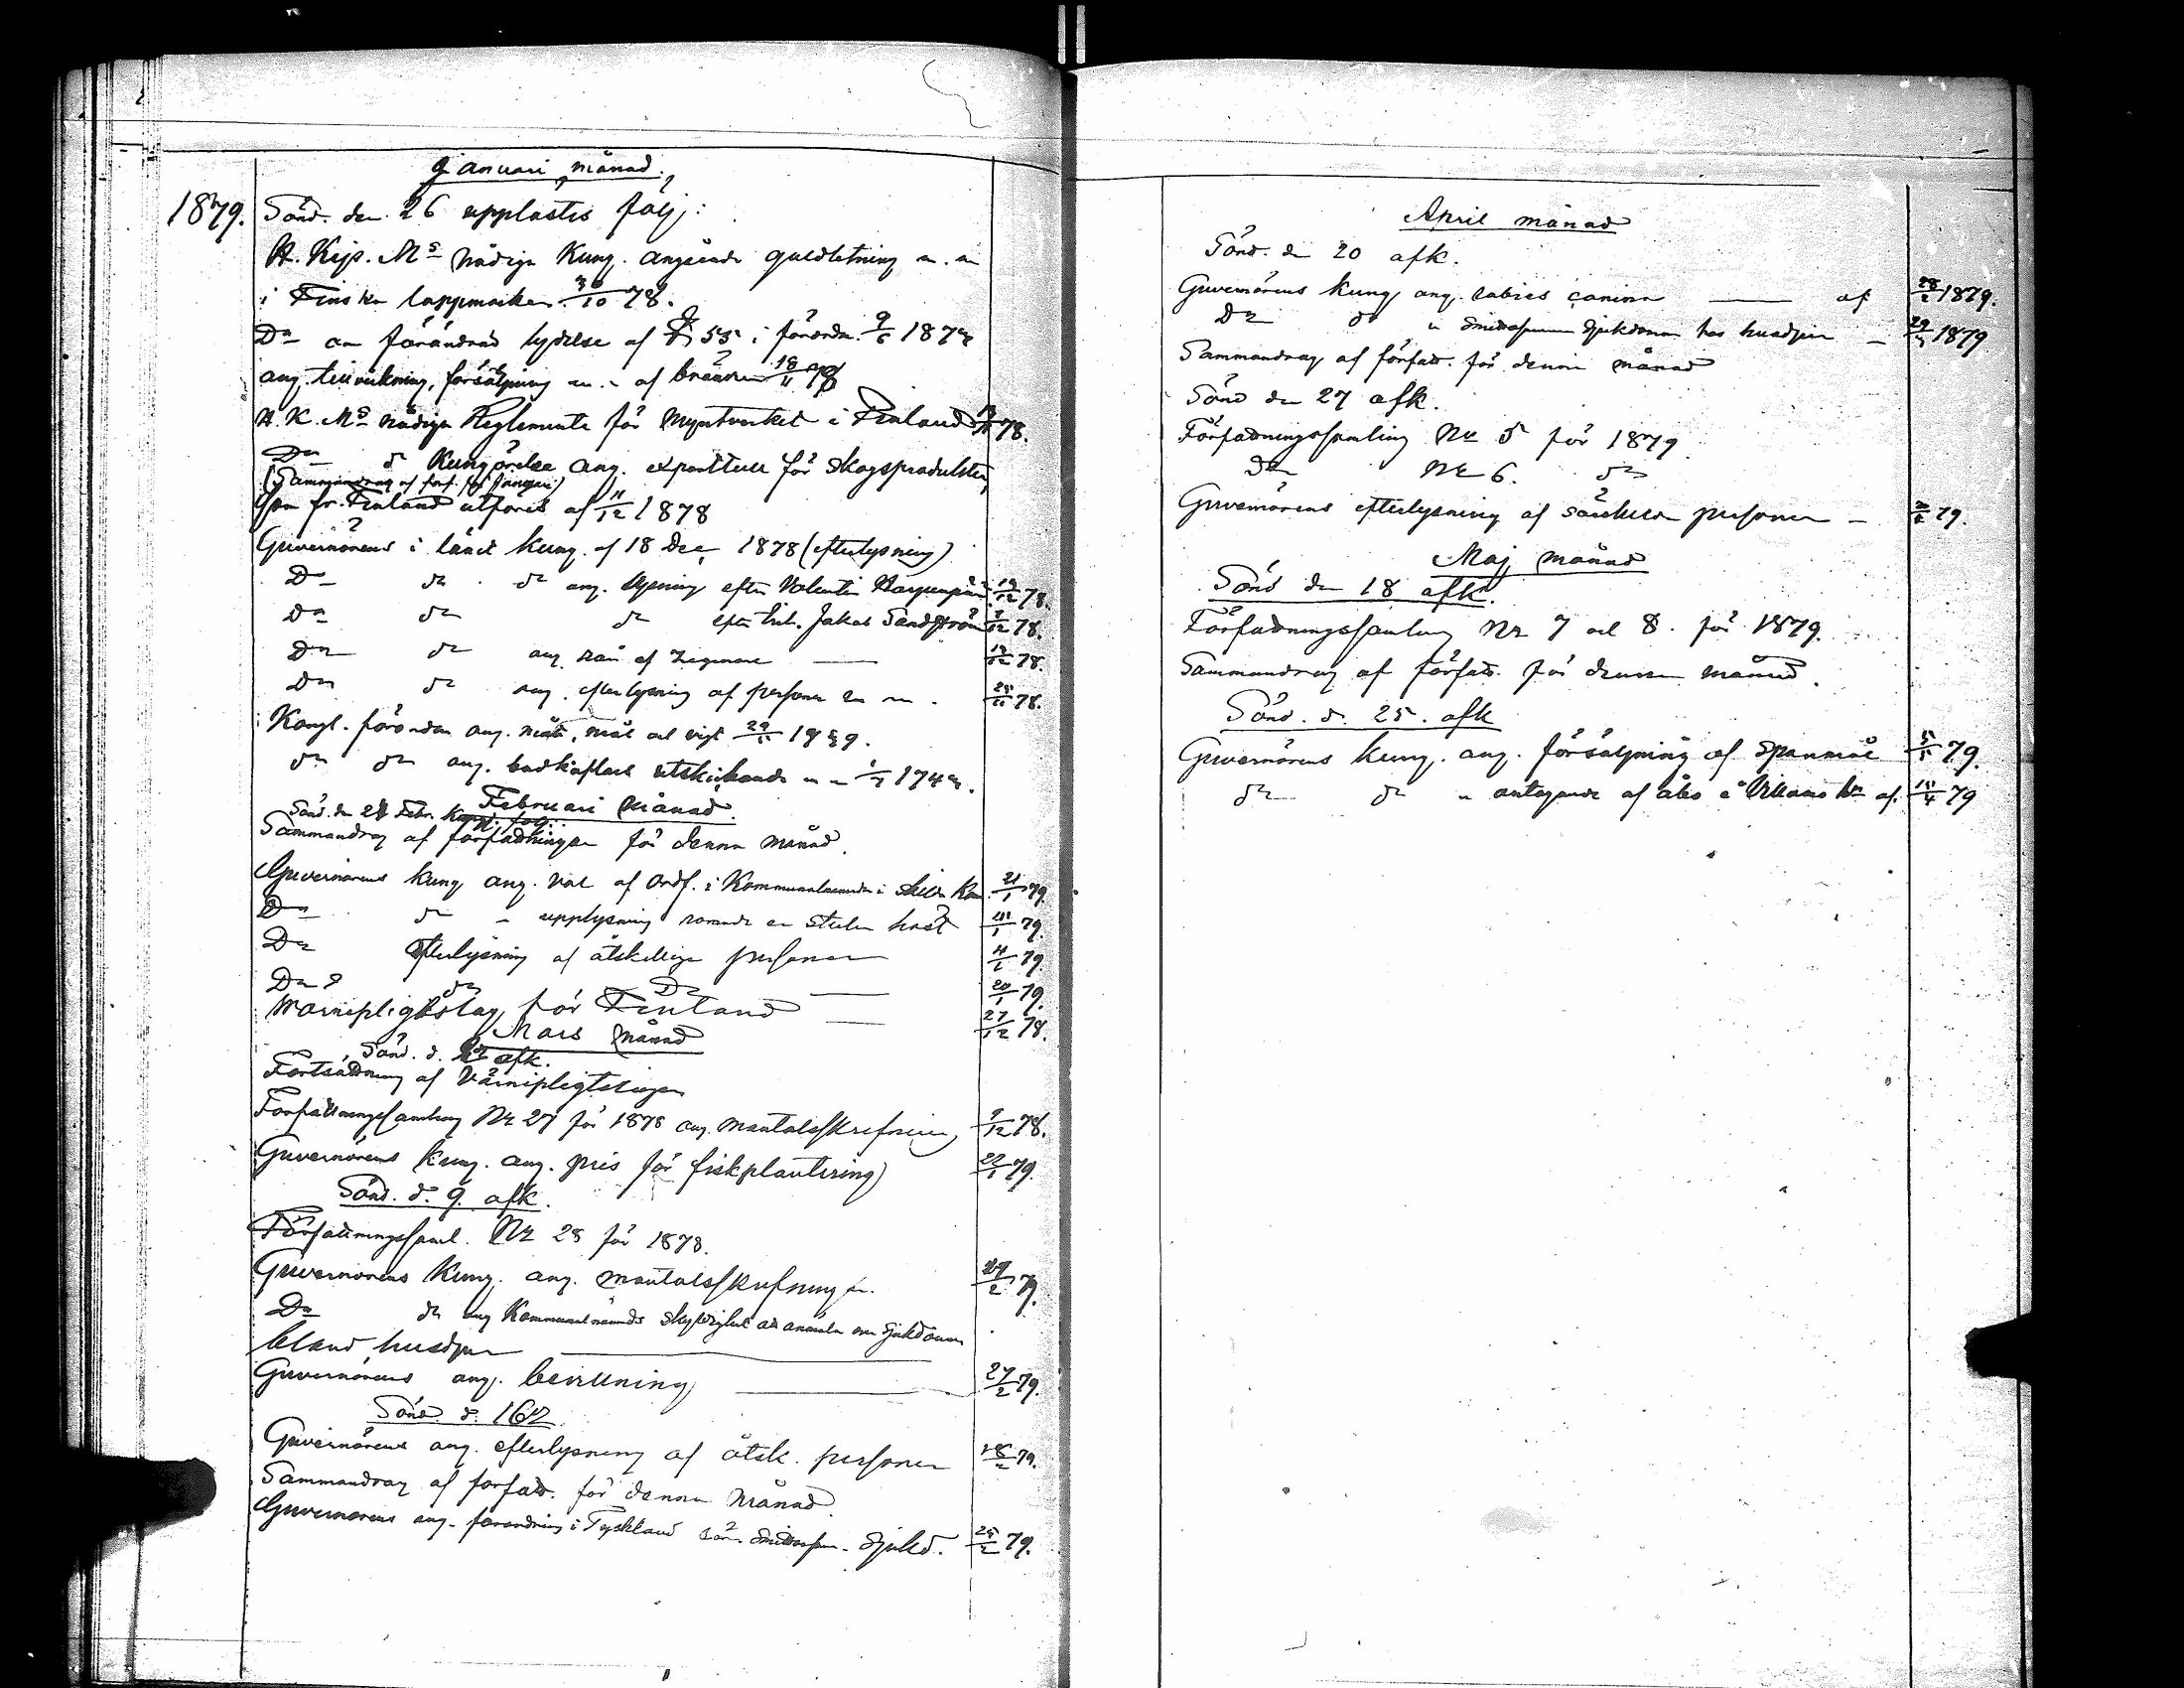 Januari månad.
1879. Sönd. den 26 upplästes följ:
H. Kejs. Ms nådiga Kung. angående guldletning m. m
i Finska lappmarken 30/10 78.
Do om förändrad lydelse af § 55 i förordn. 9/6 187
ang. tillvärkning, försäljning m. m af bränvin 18/11 78
H. K. Ms nådiga Reglemente för Myntverket i Finland 78.
Do do Kungörelse ang. exporttull för skogsprodukter,
(Sammandrag af förf. för Januari)
som fr. Finland utföres af 11/12 1878
Guvernörens i länet kung. af 18 Dec, 1878 (efterlysning)
Do do do ang. lysning efter Valentin 19/12 78.
Do do do efter Jakob Sandström /12 78.
Do do ang. rån af 19/12 78.
Do do ang. efterlysning af personer m m. 78.
Kongl. förordn ang. mått, mål och vigt 29/11 17 9.
do do ang. budkaflars utskickande m m 174 .
Februari månad.
Sönd. den 2 Febr. Kung. följ.
Sammandrag af författningar för denna månad.
Guvernörens kung ang. val af Ordf. i Kommunalnämnden i 21/1 79.
Do do - upplysning rörande en stulen häst /1 79.
Do Efterlysning af åtskilliga personer 79.
Do do Do 20/1 79.
Wärnepligtslag för Finland 27/12 78.
Mars månad
Sönd. d. afk.
Fortsättning af Värnepligtslagen
Författningssamling Nr 27 för 1878 ang. mantalsskrifning 9/12 78.
Guvernörens kung. ang. pris för fiskplantering 22/1 79.
Sönd. d. 9. afk.
Författningssaml. Nr 28 för 1878.
Guvernörens Kung. ang. mantalsskrifning 79.
Do do ang Kommunalnämnds skyldighet att anmäla om sjukdomar
bland husdjur
Guvernörens ang. bevillning 27/2 79.
Sönd. d. 16de
Guvernörens ang. efterlysning af åtsk. personer 79.
Sammandrag af författ. för denna månad.
Guvernörens ang. förordning i Tyskland rör. smittosam. sjukd. 79.
April månad
Sönd. den 20 afk.
Guvernörens kung. ang. rabies canina af 28/2 1879.
Do do " smittosamma sjukdomar hos husdjur 1879
Sammandrag af författ. för denna månad
Sönd den 27 afk.
Författningssamling Nr 5 för 1879
do Nr 6. do
Guvernörens efterlysning af särskilda personer 79.
Maj månad
Sönd den 18 afk.
Författningssamling Nr 7 och 8. för 1879.
Sammandrag af författ. för denna månad.
Sönd. d. 25. afk
Guvernörens kung. ang. försäljning af spanmål 79.
do do " antagande af åbo å af 79